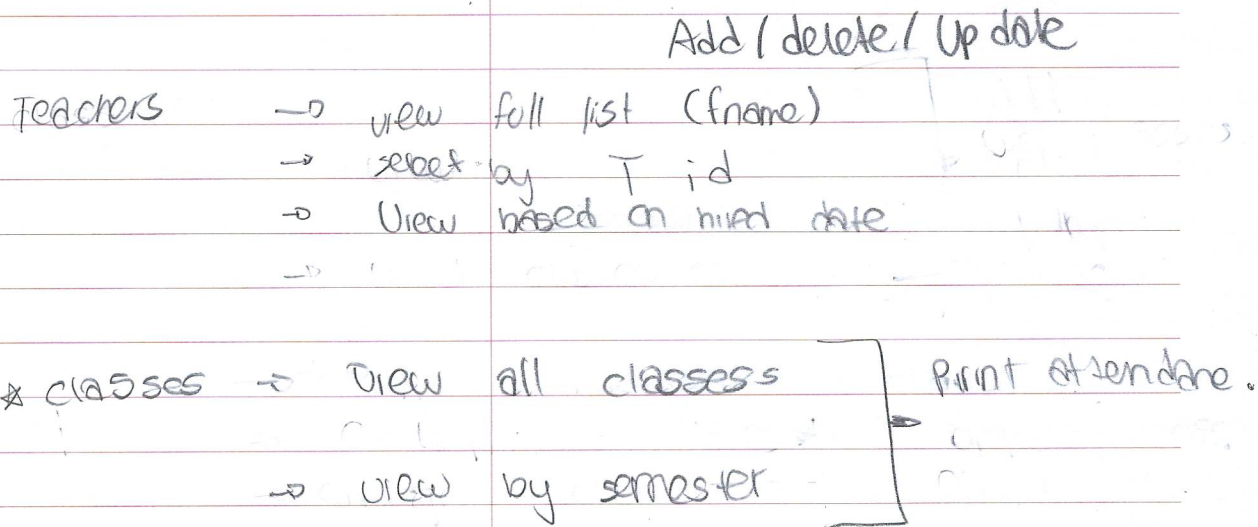 Add / delete / Update
Teachers → view full list (fname)
→ select by T id
→ View based on hired date
→
* classes → View all classess
Print attendane.
→ view by semester